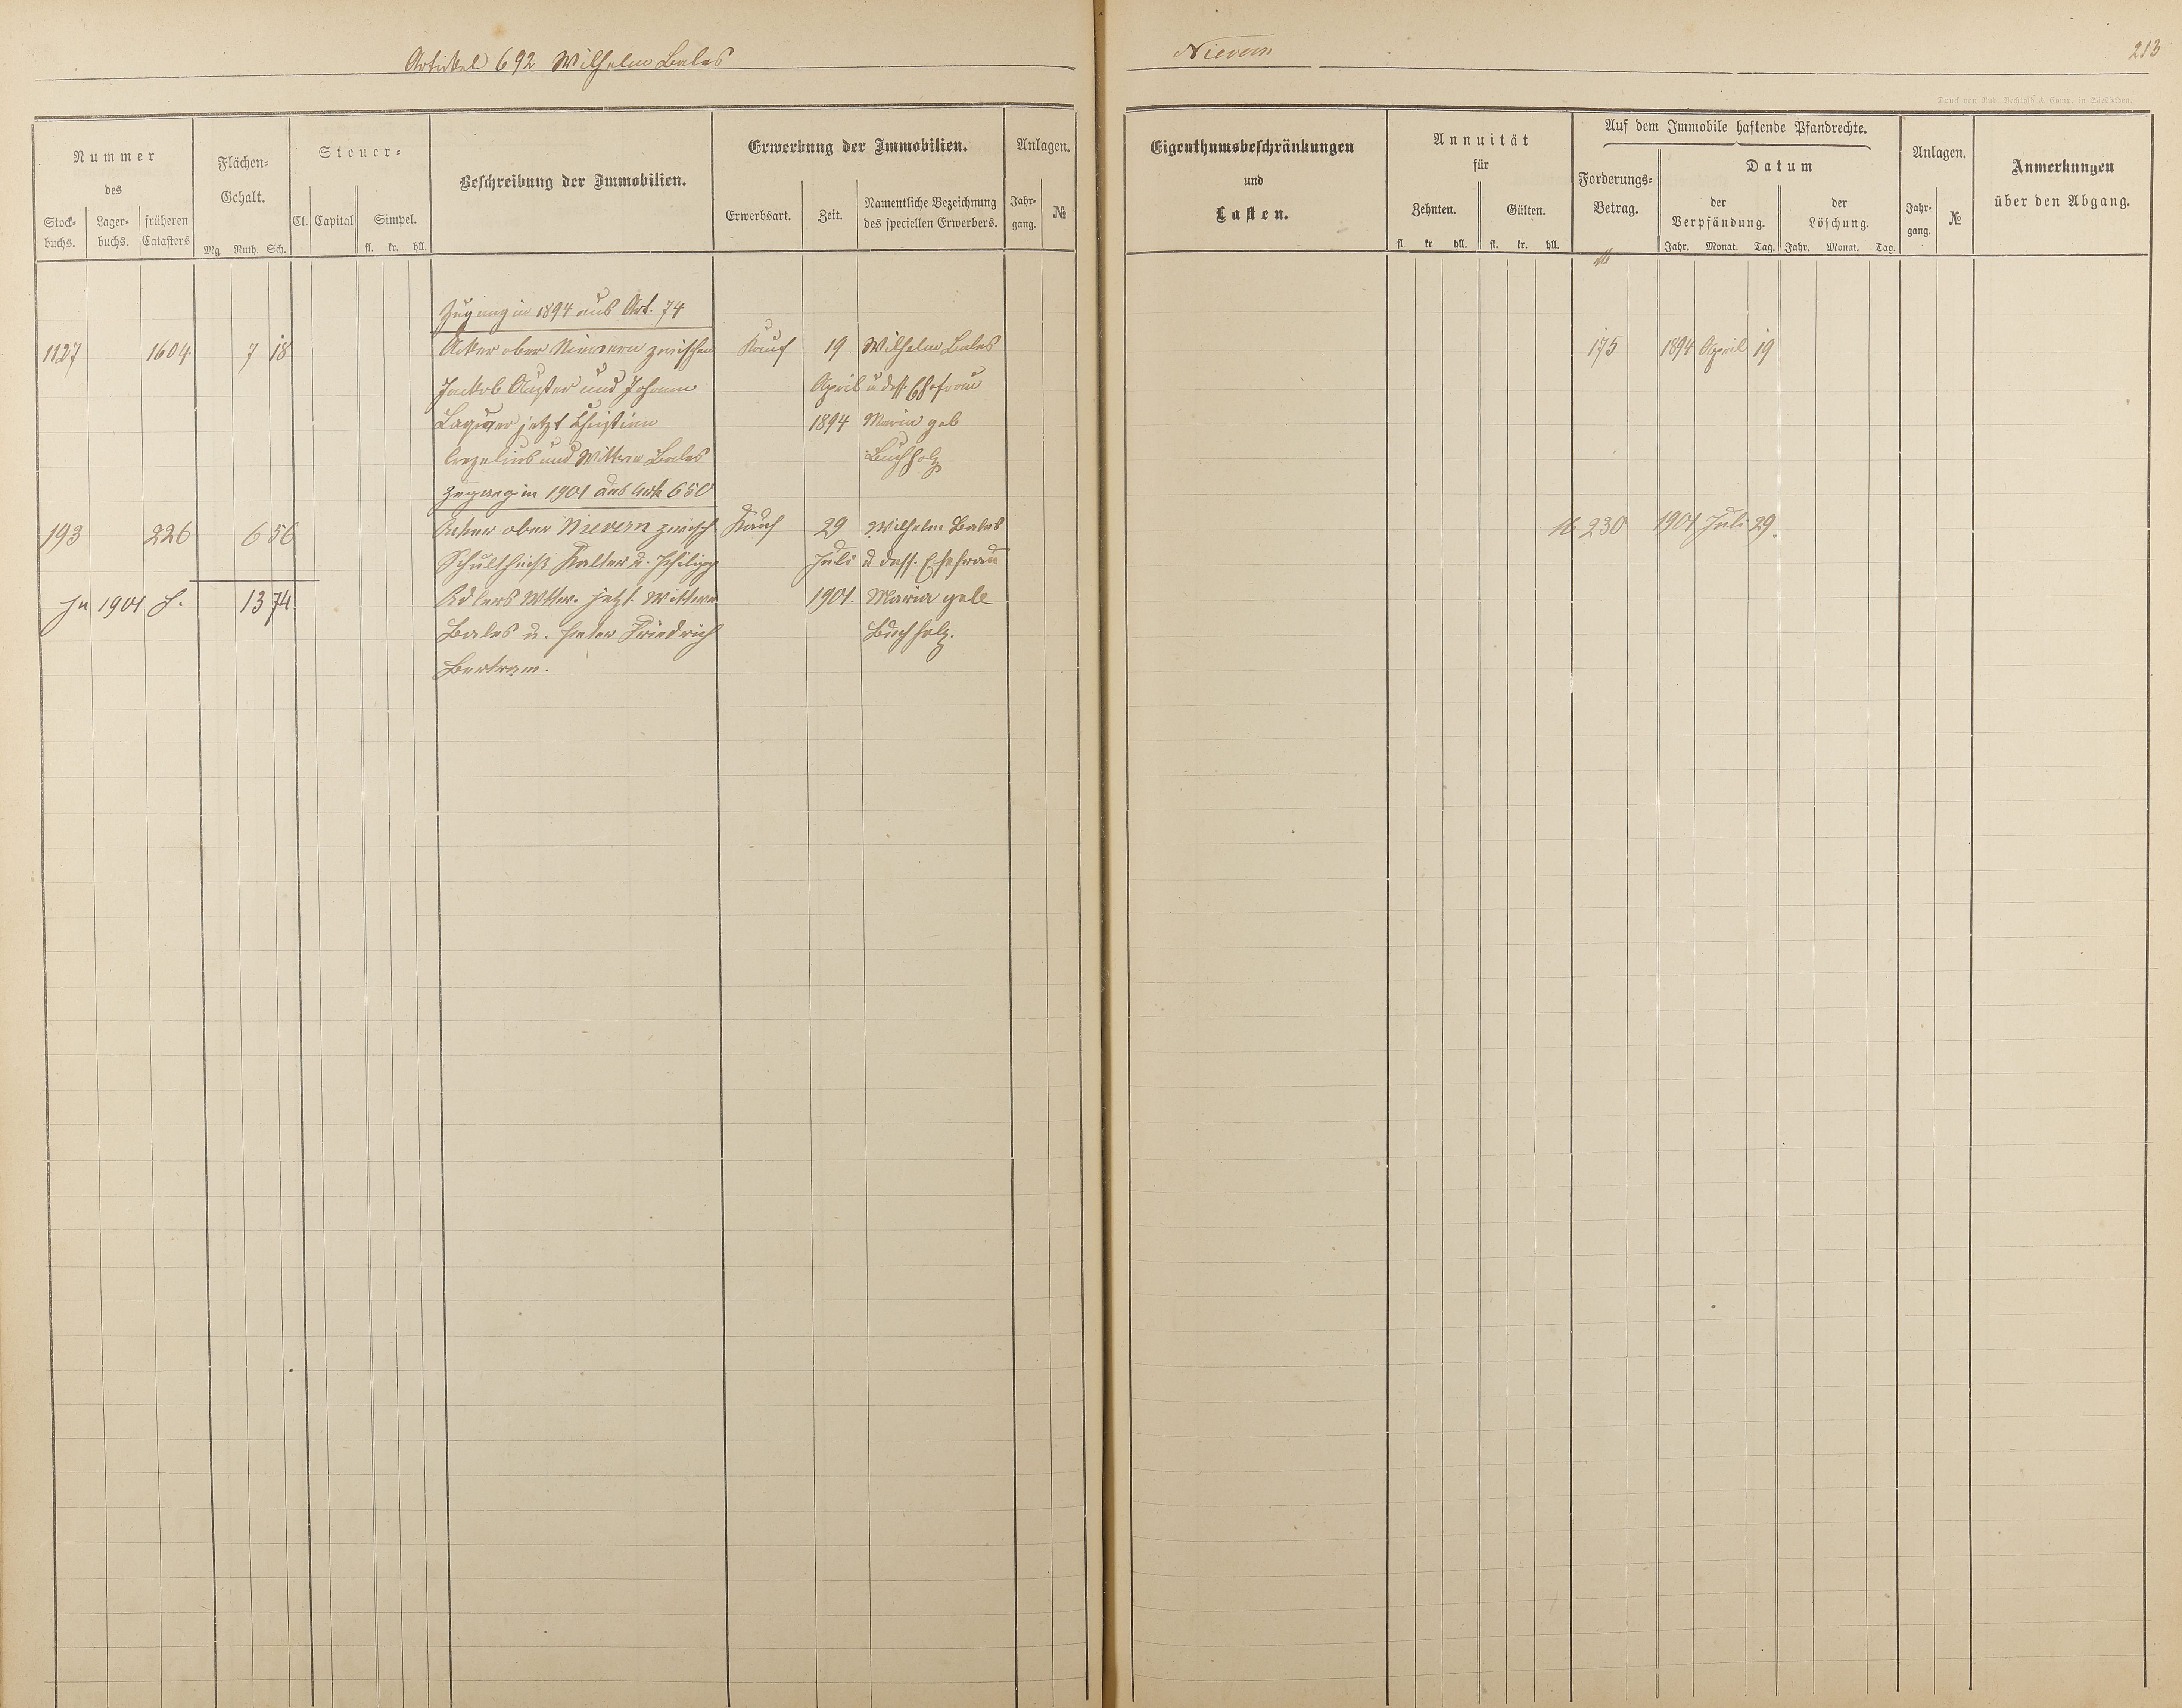 Artikel 692 Wilhelm Bales
Nievern
213
Druck von Rud. Bechtold & Comp. in Wiesbaden.
Nummer
des
Stock-
buchs.
Lager-
buchs.
früheren
Catasters
Flächen-
Gehalt.
Mg. Ruth. Sch.
Steuer-
Cl. Capital Simpel.
fl. kr. hll.
Beschreibung der Immobilien.
Erwerbung der Immobilien.
Erwerbsart. Zeit.
Namentliche Bezeichnung
des speciellen Erwerbers.
Anlagen.
Jahr-
gang.
№
Eigenthumsbeschränkungen
und
Lasten.
Annuität
für
Zehnten. Gülten.
fl. kr hll. fl. kr. hll.
Auf dem Immobile haftende Pfandrechte.
Forderungs-
Betrag.
Datum
der
Verpfändung.
der
Löschung.
Jahr. Monat. Tag. Jahr. Monat. Tag.
Anlagen.
Jahr-
gang.
№
Anmerkungen
über den Abgang.
Zugang in 1894 aus Art. 74
1127 1604 7 18 Acker ober Nievern zwischen Kauf 19 Wilhelm Bales 175 1894 April 19
Jackob und Johann April u dess. Ehefrau
jetzt Christian 1894 Maria geb
und Wittwe Bales Buchholz
Zugang in 1901 aus Art. 650
193 226 6 56 Acker ober Nievern zwisch Kauf 29 Wilhelm Bales 16 230 1901 Juli 29.
Schultheiß u. Philipp Juli u dess. Ehefrau
In 1901 S. 13 74 Adlers Wttw. jetzt Wittwe 1901. Maria geb
Bales u. Peter Friedrich Buchholz.
Bertram.